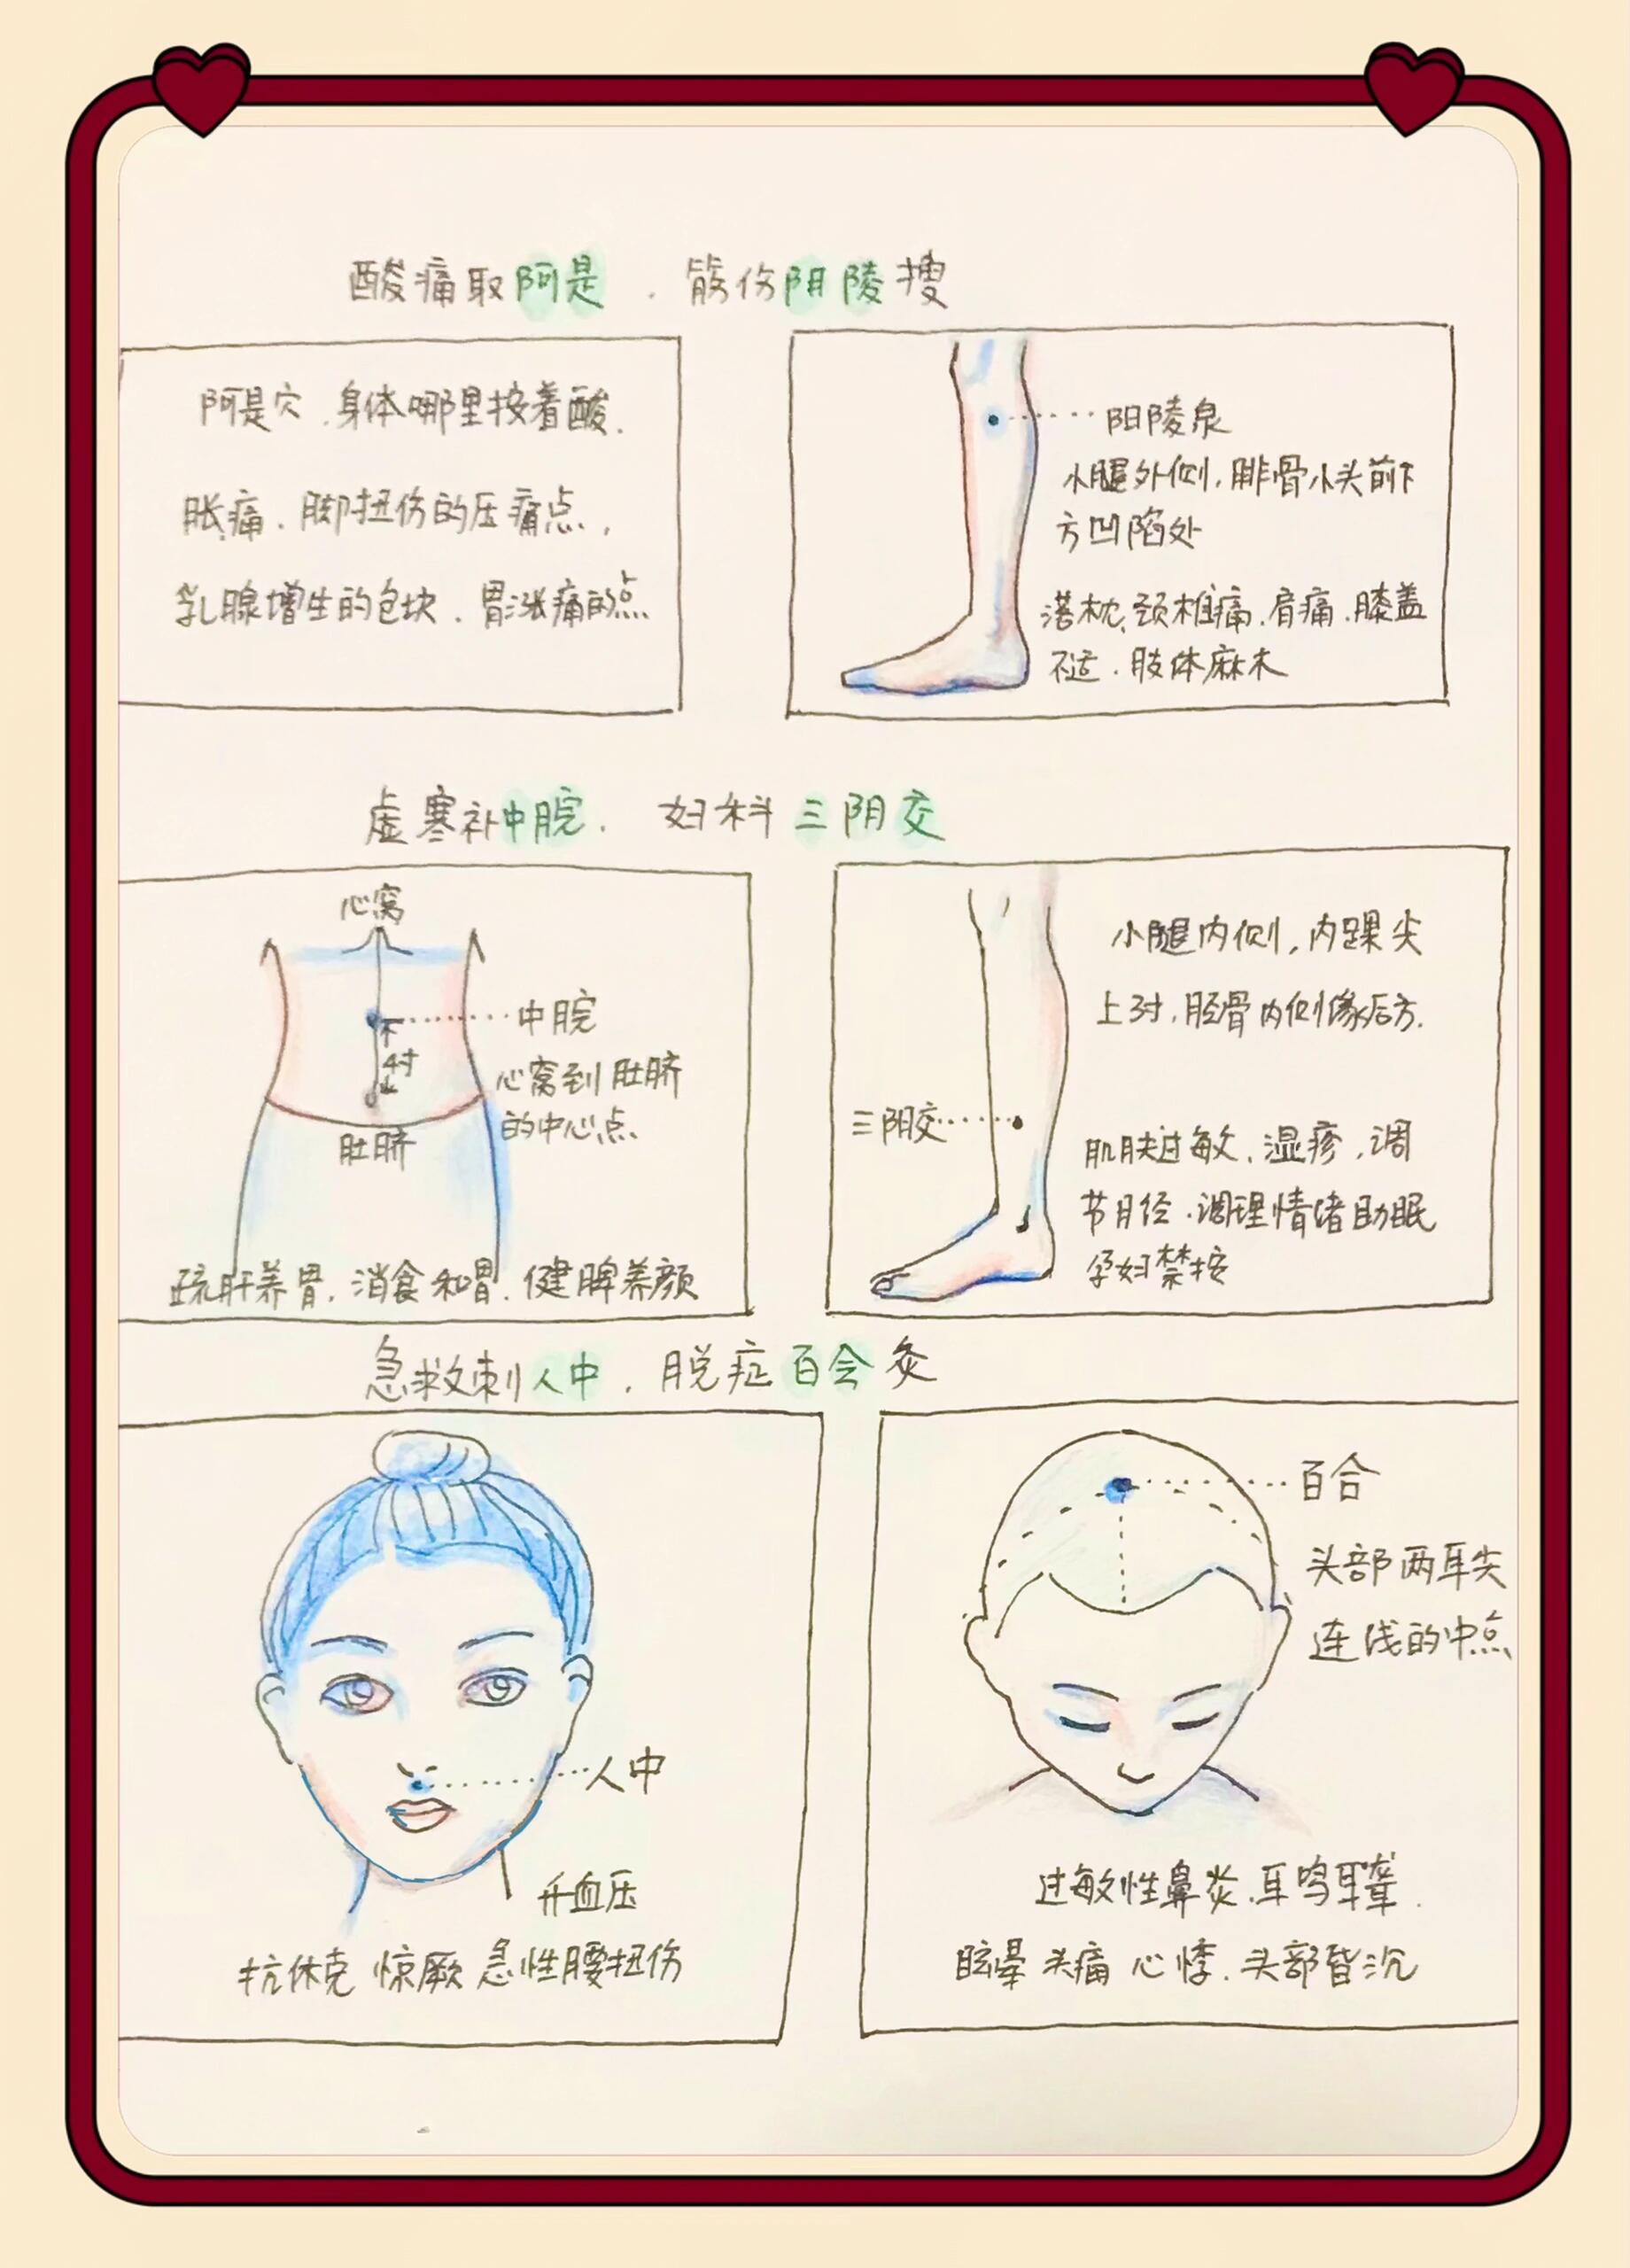 酸痛取阿是．筋伤阴陵搜
阿是穴．身体哪里按着酸．
胀痛．脚扭伤的压痛点，
乳腺增生的包块．胃涨痛的点
阳陵泉
小腿外侧，腓骨小头前下
方凹陷处
落枕、颈椎痛．肩痛．膝盖
不适．肢体麻木
虚寒补中脘．妇科三阴交
心窝
中脘
4寸
心窝到肚脐
的中心点
肚脐
疏肝养胃．消食和胃．健脾养颜
小腿内侧，内踝尖
上3寸，胫骨内侧缘后方．
三阴交
肌肤过敏、湿疹，调
节月经．调理情绪助眠
孕妇禁按
急救刺人中．脱症百会灸
人中
升血压
抗休克 惊厥 急性腰扭伤
百合
头部两耳尖
连线的中点
过敏性鼻炎．耳鸣耳聋．
眩晕 头痛 心悸．头部昏沉